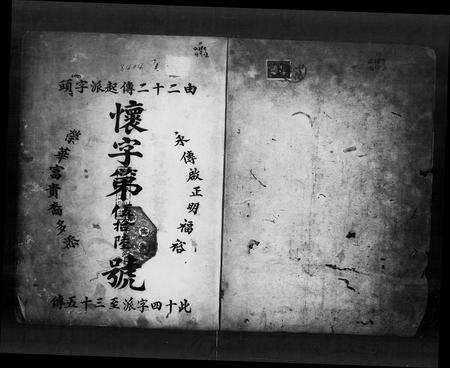 由二十二傳起派字頭
永傳啟正明福容
懷字第伍拾陸號
榮華富貴裔多
此十四字派至三十五傳